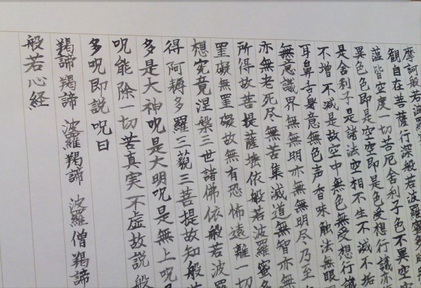 摩訶般若波羅
観自在菩薩行深般若波羅蜜多
蘊皆空度一切苦厄舎利子色不異空空
異色色即是空空即是色受想行識亦
是舎利子是諸法空相不生不滅不垢
不増不減是故空中無色無受想行識
耳鼻舌身意無色声香味触法無眼
無意識界無無明亦無無明尽乃至
亦無老死尽無苦集滅道無智亦無
所得故菩提薩埵依般若波羅蜜多
罣礙無罣礙故無有恐怖遠離一切
想究竟涅槃三世諸佛依般若波羅
得阿耨多羅三藐三菩提故知般若
多是大神呪是大明呪是無上呪
呪能除一切苦真実不虚故説般
多呪即説呪曰
羯諦羯諦 波羅羯諦 波羅僧羯諦
般若心経